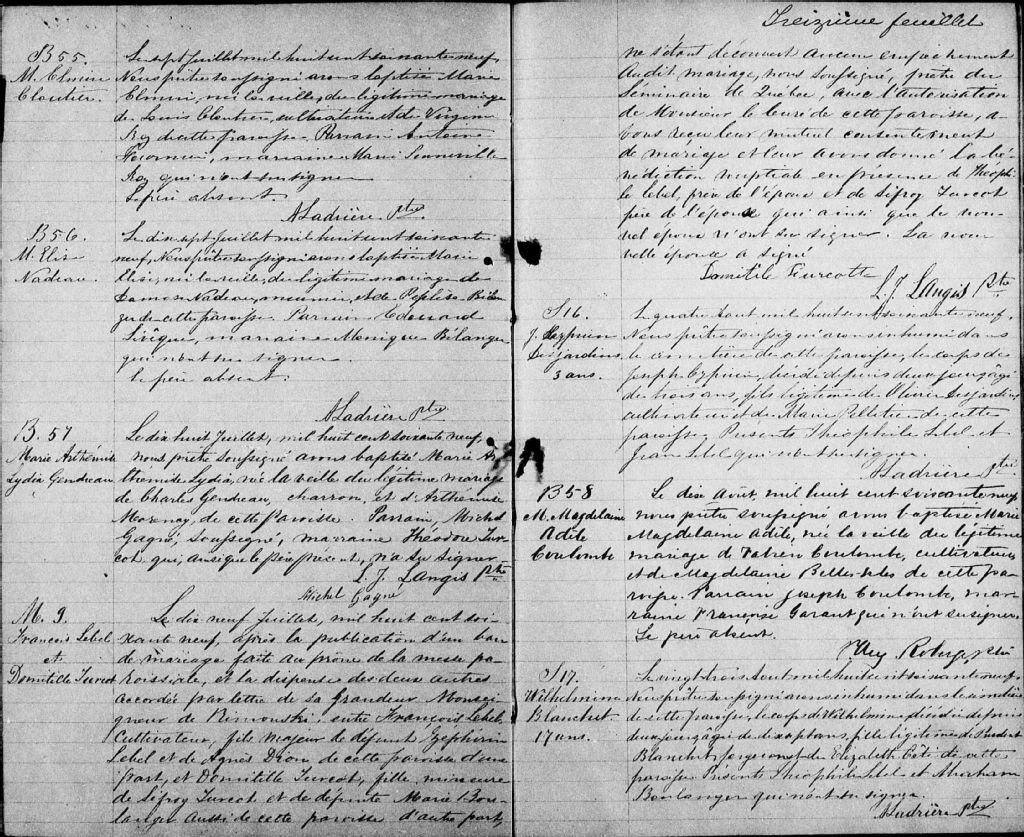 B 55.
M. Elmire
Cloutier.
Le sept Juillet mil huit cent soixante neuf,
Nous prêtre soussigné avons baptisé Marie
Elmire, née la veille, du légitime mariage
de Louis Cloutier, cultivateur et de Virginie
Roy de cette paroisse. Parrain Antoine
Fournier, marraine Marie
Roy qui n'ont su signer
Le père absent.
A Ladrière Ptre.
B 56.
M. Elise
Nadeau.
Le dix sept Juillet mil huit cent soixante
neuf, Nous prêtre soussigné avons baptisé Marie
Elise, née la veille, du légitime mariage de
Damase Nadeau, meunier, et de Bélan
ger de cette paroisse. Parrain Edouard
Lévêque, marraine Monique Bélanger
qui n'ont su signer.
le père absent.
A Ladrière Ptre
B. 57
Marie Arthémise
Lydia Gendreau
Le dix huit Juillet, mil huit cent soixante neuf,
nous prêtre soussigné avons baptisé Marie Ar
thémise Lydia, née la veille du légitime mariage
de Charles Gendreau, charron, et d'Arthémise
Morency, de cette Paroisse. Parrain, Michel
Gagné, soussigné, marraine Théodore Tur
cot, qui, ainsi que le Père présent, n'a su signer
L. J. Langis Ptre
Michel Gagné
M. 9.
François Lebel
et
Domitille Turcot
Le dix neuf Juillet, mil huit cent soi
xante neuf, après la publication d'un ban
de mariage faite au prône de la messe pa
roissiale, et la dispense des deux autres
accordée par lettre de sa Grandeur Monsei
gneur de Rimouski, entre François Lebel,
Cultivateur, fils majeur de défunt Zéphirin
Lebel et de Agnès Dion de cette paroisse d'une
part, et Domitille Turcot, fille mineure
de Lefroy Turcot et de défunte Marie Bou
langer aussi de cette paroisse d'autre part,
Treizième feuillet
ne s'étant découvert aucun empêchement
audit mariage, nous soussigné, prêtre du
Séminaire de Québec, avec l'autorisation
de Monsieur le Curé de cette paroisse, a
vons reçu leur mutuel consentement
de mariage et leur avons donné la bé
nédiction nuptiale en présence de Théophi
le Lebel, frère de l'époux et de Lefroy Turcot
père de l'épouse qui ainsi que le nou
vel époux n'ont su signer. La nou
velle épouse a signé
Domitile Turcotte
L. J. Langis Ptre
S 16.
J. Cyprien
Desjardins,
3 ans.
Le quatre Aout mil huit cent soixante neuf,
Nous prêtre soussigné avons inhumé dans
le cimetière de cette paroisse, le corps de
Joseph Cyprien, décédé depuis deux jours, âgé
de trois ans, fils légitime de Olivier Desjardins
cultivateur et de Marie Pelletier de cette
paroisse. Présents Théophile Lebel et
Jean Lebel qui n'ont su signer.
A Ladrière Ptre
B 58
M. Magdelaine
Adèle
Coulombe
Le dix Août, mil huit cent soixante neuf
nous prêtre soussigné avons baptisé Marie
Magdelaine Adèle, née la veille du légitime
mariage de Fabien Coulombe, cultivateur,
et de Magdelaine Belles-Isles de cette pa
roisse. Parrain Joseph Coulombe, mar
raine Françoise Garant qui n'ont su signer
Le père absent.
Roberge ptre
S 17.
Wilhelmine
Blanchet.
17 ans.
Le vingt trois Aout mil huit cent soixante neuf,
Nous prêtre soussigné avons inhumé dans le cimetière
de cette paroisse, le corps de Wilhelmine décédée depuis
deux jours, âgée de dix sept ans, fille légitime de
Blanchet, forgeron et de Elizabeth Côté de cette
paroisse. Présents Théophile Lebel et Abraham
Boulanger qui n'ont su signer.
A Ladrière Ptre